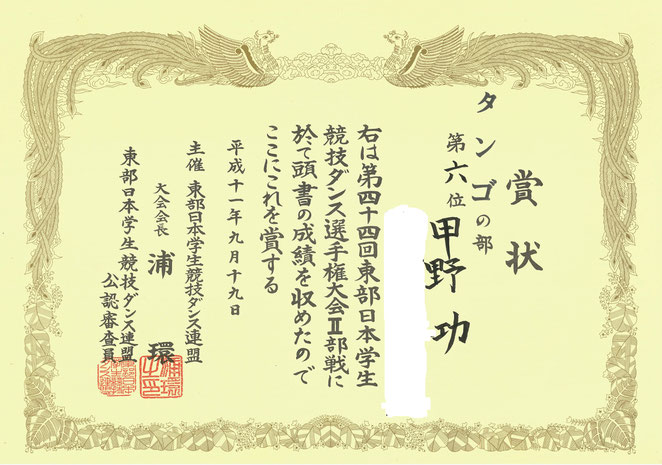 賞状
タンゴの部
第六位
甲野 功
右は第四十四回東部日本学生
競技ダンス選手権大会Ⅱ部戦に
於て頭書の成績を収めたので
ここにこれを賞する
平成十一年九月十九日
主催 東部日本学生競技ダンス連盟
大会会長 浦 環
東部日本学生競技ダンス連盟
公認審査員